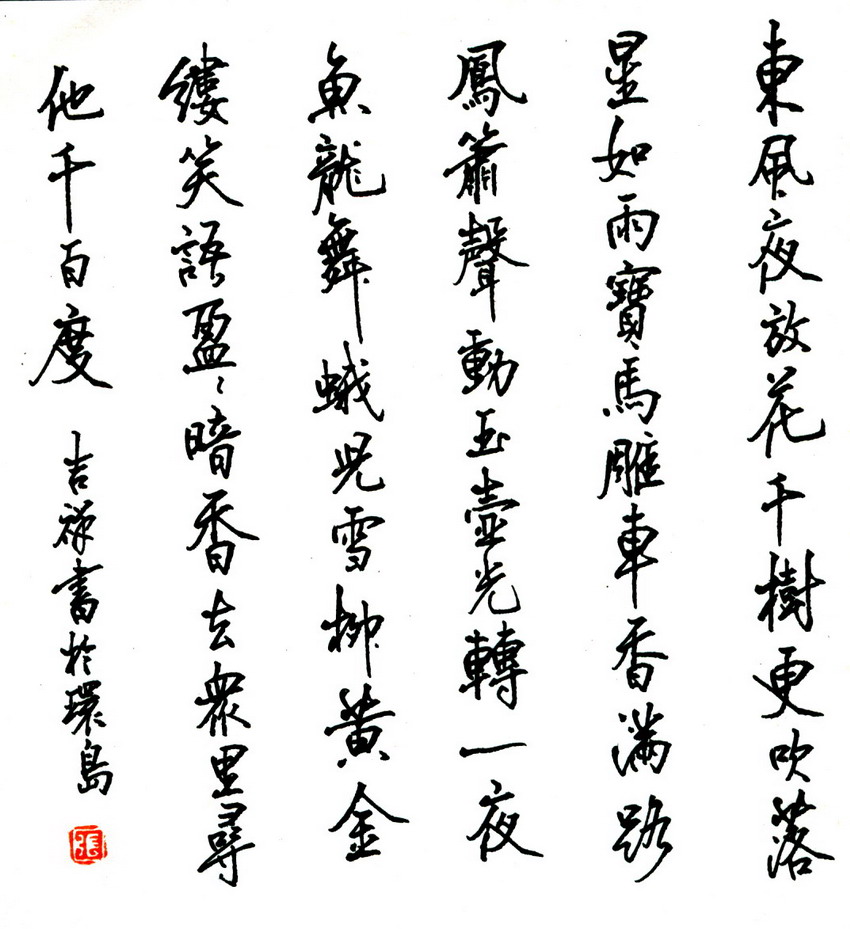 東風夜放花千樹更吹落
星如雨寶馬雕車香滿路
鳳簫聲動玉壺光轉一夜
魚龍舞蛾兒雪柳黃金
縷笑語盈〻暗香去衆里尋
他千百度
吉祥書於環島
張